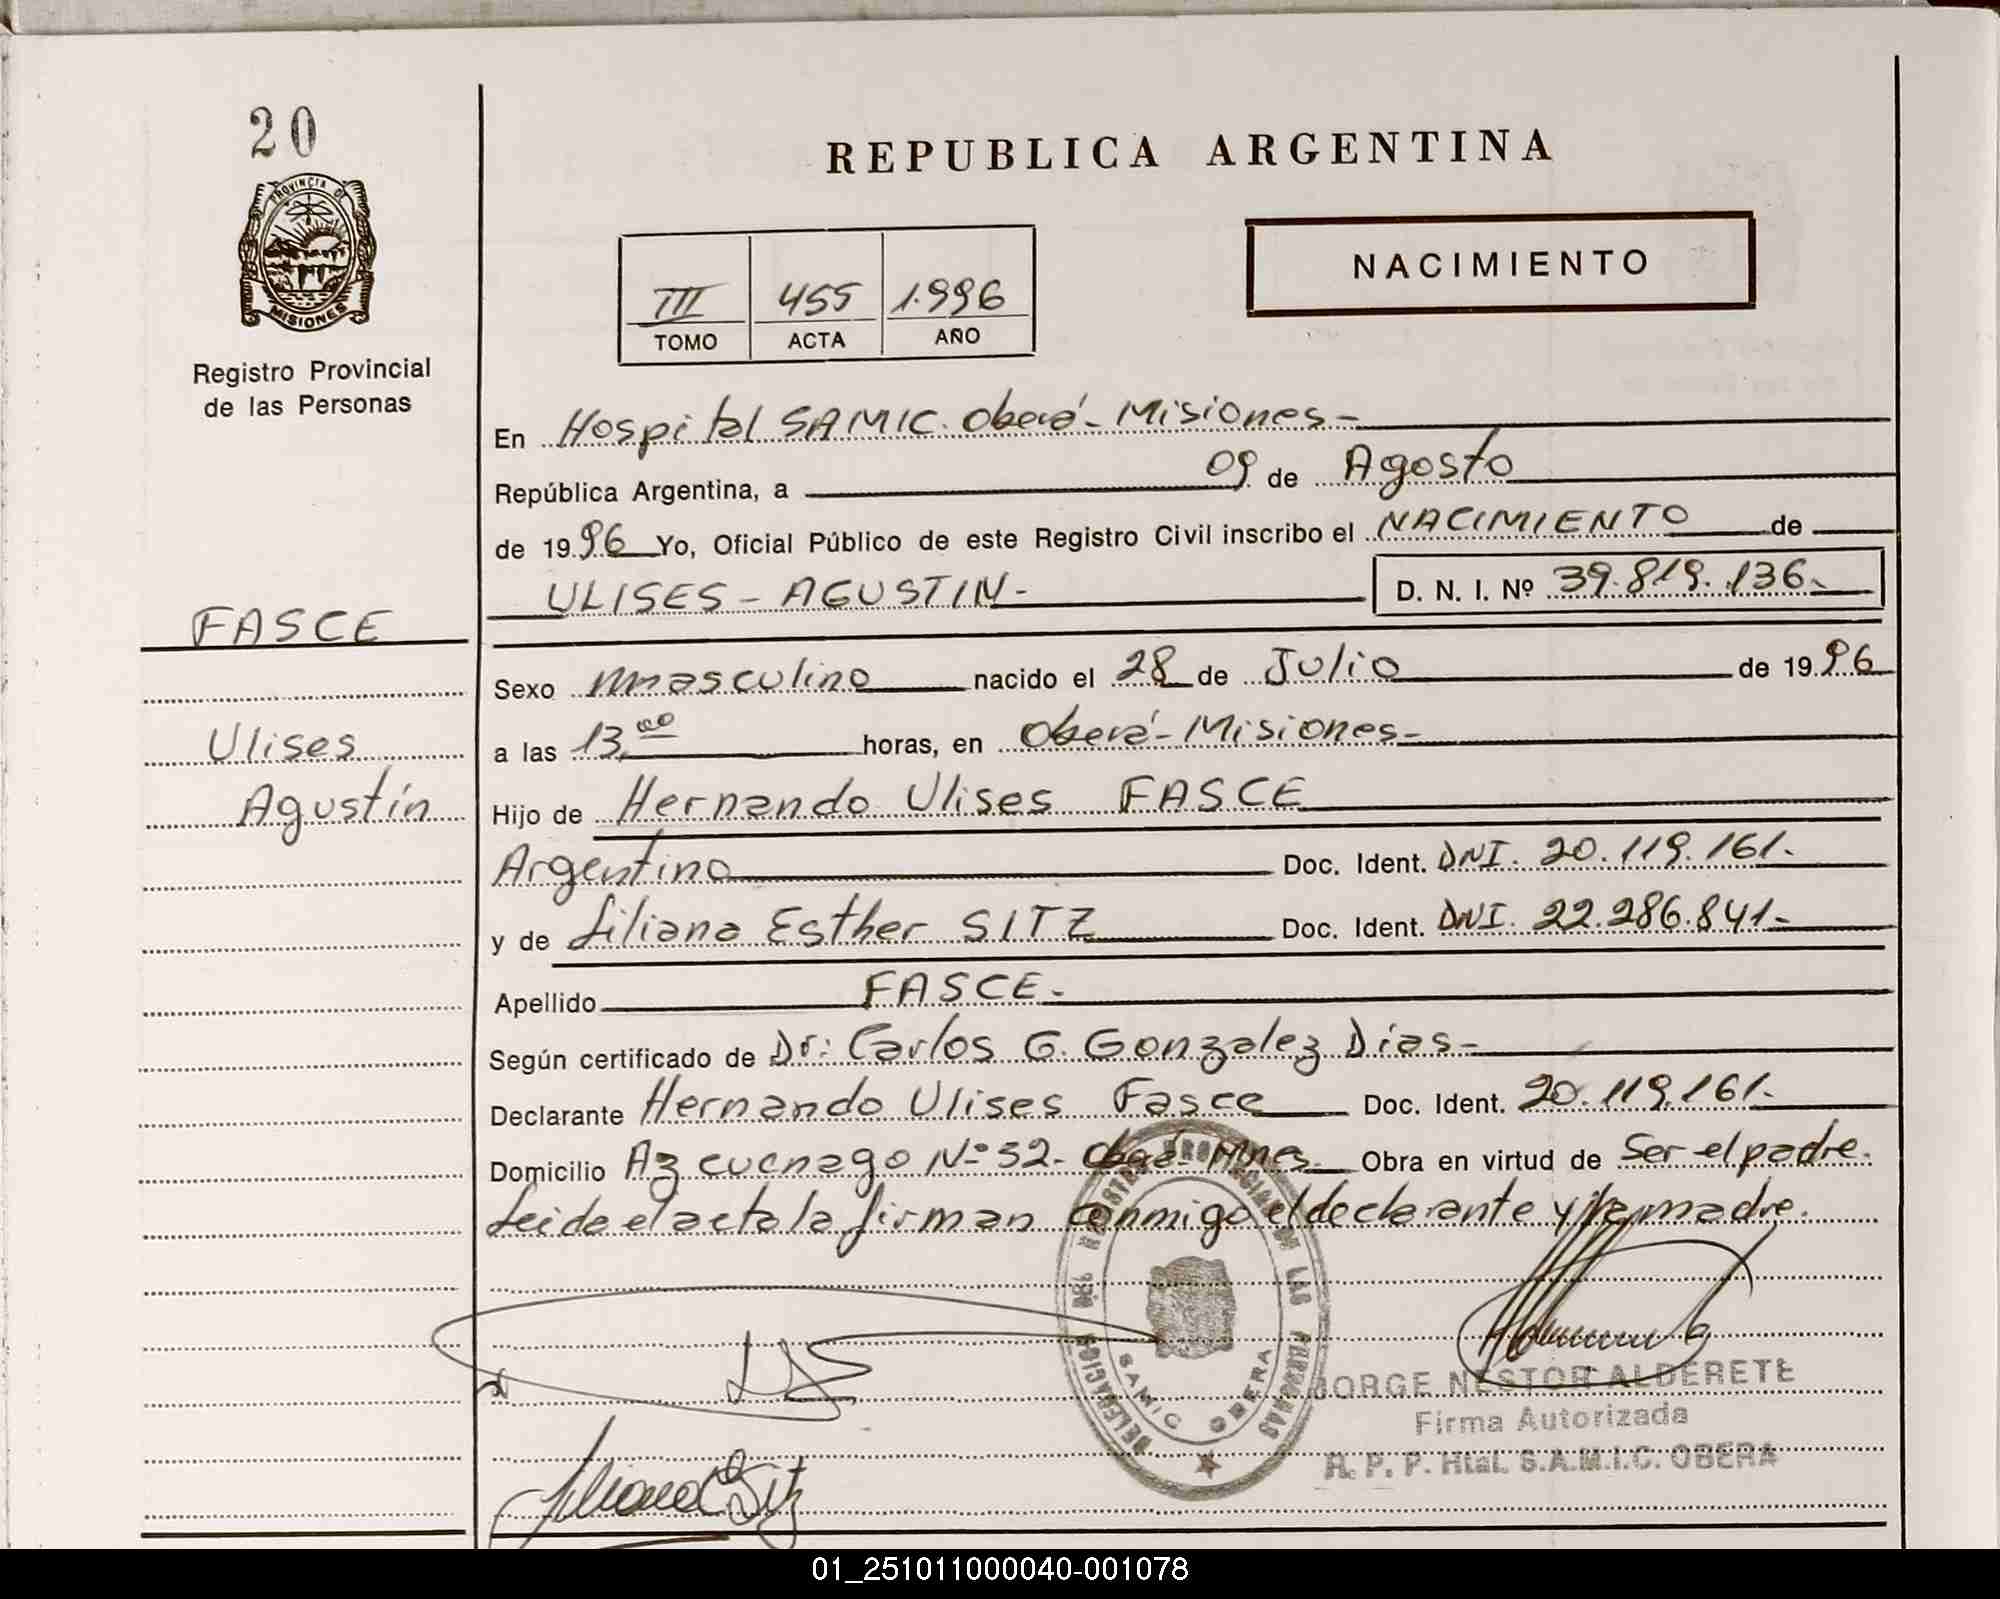 20
PROVINCIA DE
MISIONES
Registro Provincial
de las Personas
REPUBLICA ARGENTINA
III 455 1.996
TOMO ACTA AÑO
NACIMIENTO
En Hospital SAMIC. Oberá - Misiones -
República Argentina, a 09 de Agosto
de 1996 Yo, Oficial Público de este Registro Civil inscribo el NACIMIENTO de
ULISES - AGUSTIN - D. N. I. Nº 39.819.136.
FASCE
Sexo masculino nacido el 28 de Julio de 1996
Ulises
a las 13,00 horas, en Oberá - Misiones -
Agustín
Hijo de Hernando Ulises FASCE
Argentino Doc. Ident. DNI. 20.119.161.-
y de Liliana Esther SITZ Doc. Ident. DNI. 22.286.841-
Apellido FASCE.
Según certificado de Dr: Carlos G. Gonzalez Dias-
Declarante Hernando Ulises Fasce Doc. Ident. 20.119.161.-
Domicilio Azcuenago Nº 52- Oberá- Mnes. Obra en virtud de Ser el padre.
Leida el acta la firman conmigo el declarante y la madre.
SAMIC OBERA
JORGE NESTOR ALDERETE
Firma Autorizada
R. P. P. Htal. S.A.M.I.C. OBERA
Liliana Sitz
01_251011000040-001078